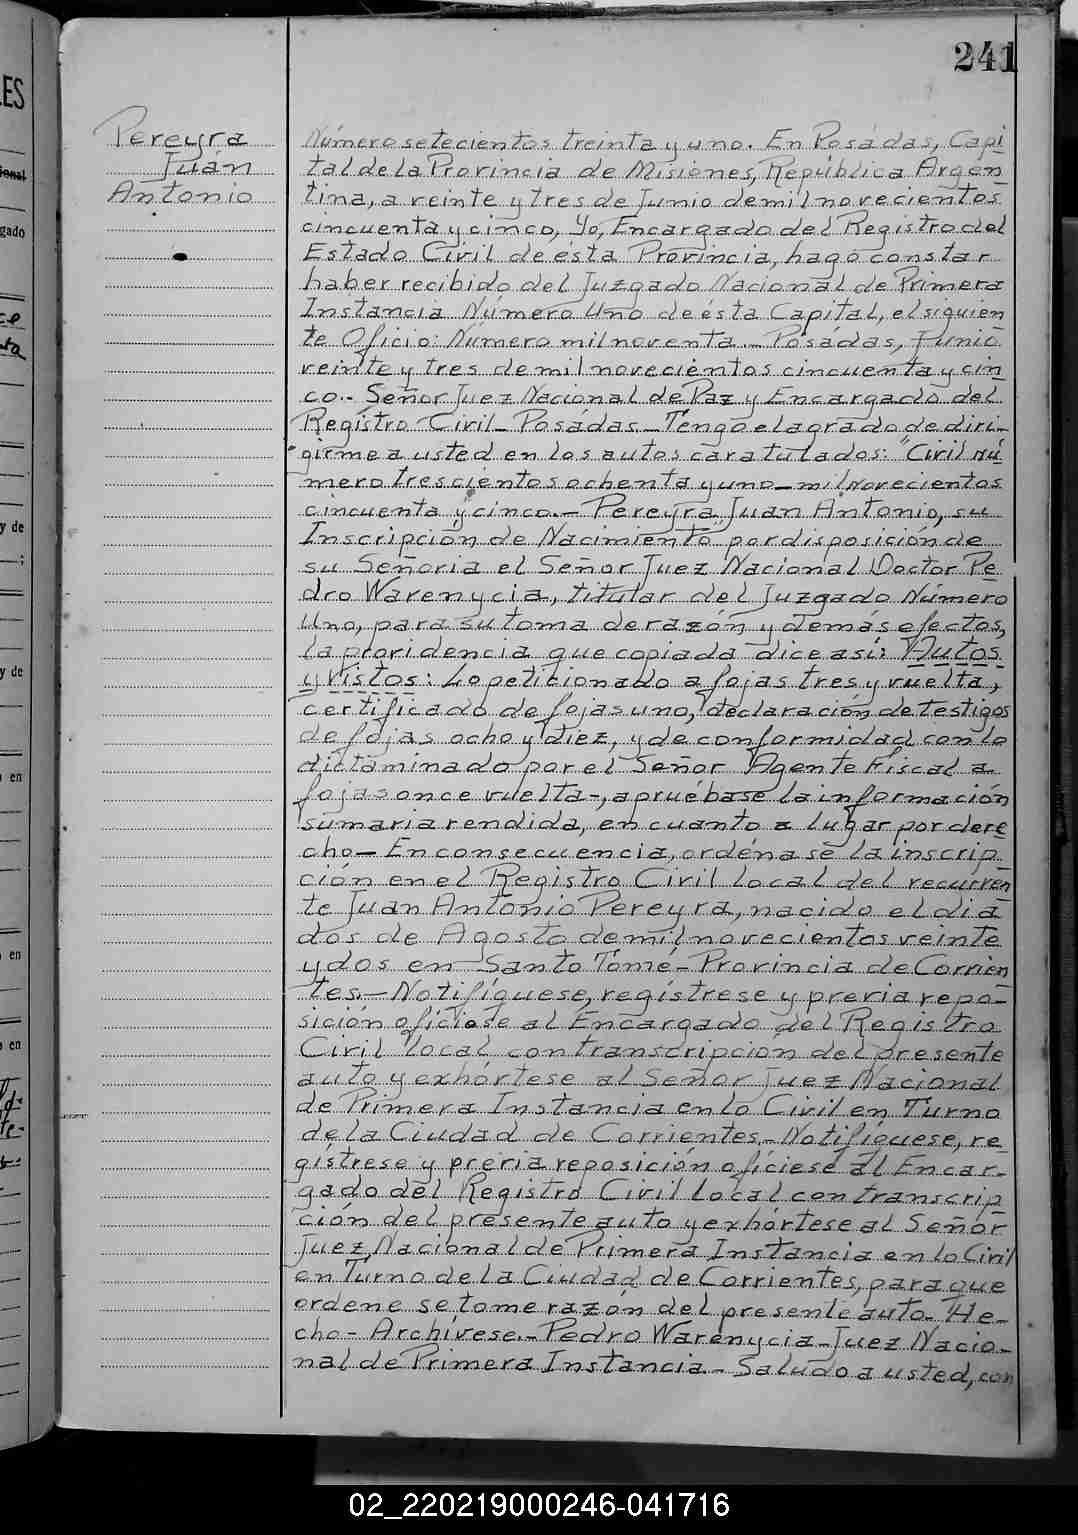 241
Pereyra
Juán
Antonio
Número setecientos treinta y uno. En Posádas, Capi
tal de la Provincia de Misiones, República Argen
tina, a veinte y tres de Junio de mil novecientos
cincuenta y cinco, Yo, Encargado del Registro del
Estado Civil de ésta Provincia, hago constar
haber recibido del Juzgado Nacional de Primera
Instancia Número Uno de ésta Capital, el siguien
te Oficio: Número mil noventa.- Posádas, Junio
veinte y tres de mil novecientos cincuenta y cin
co.- Señor Juez Nacional de Paz y Encargado del
Registro Civil- Posádas- Tengo el agrado de diri-
girme a usted en los autos caratulados: "Civil nú
mero trescientos ochenta y uno- mil novecientos
cincuenta y cinco.- Pereyra Juan Antonio, su
Inscripción de Nacimiento" por disposición de
su Señoria el Señor Juez Nacional Doctor Pe
dro Warenycia, titular del Juzgado Número
Uno, para su toma de razón y demás efectos,
la providencia que copiada dice así: Autos
y Vistos: Lo peticionado a fojas tres y vuelta,
certificado de fojas uno, declaración de testigos
de fojas ocho y diez, y de conformidad con lo
dictaminado por el Señor Agente Fiscal a
fojas once vuelta-, apruébase la información
sumaria rendida, en cuanto a lugar por dere
cho- En consecuencia, ordénase la inscrip
ción en el Registro Civil local del recurren
te Juan Antonio Pereyra, nacido el dia
dos de Agosto de mil novecientos veinte
y dos en Santo Tomé- Provincia de Corrien
tes.- Notifíquese, regístrese y previa repo-
sición ofíciese al Encargado del Registro
Civil local con transcripción del presente
auto y exhórtese al Señor Juez Nacional
de Primera Instancia en lo Civil en Turno
de la Ciudad de Corrientes.- Notifíquese, re
gístrese y previa reposición ofíciese al Encar-
gado del Registro Civil Local con transcrip
ción del presente auto y exhórtese al Señor
Juez Nacional de Primera Instancia en lo Civil
en Turno de la Ciudad de Corrientes, para que
ordene se tome razón del presente auto- He-
cho- Archívese.- Pedro Warenycia- Juez Nacio-
nal de Primera Instancia.- Saludo a usted, con
02_220219000246-041716